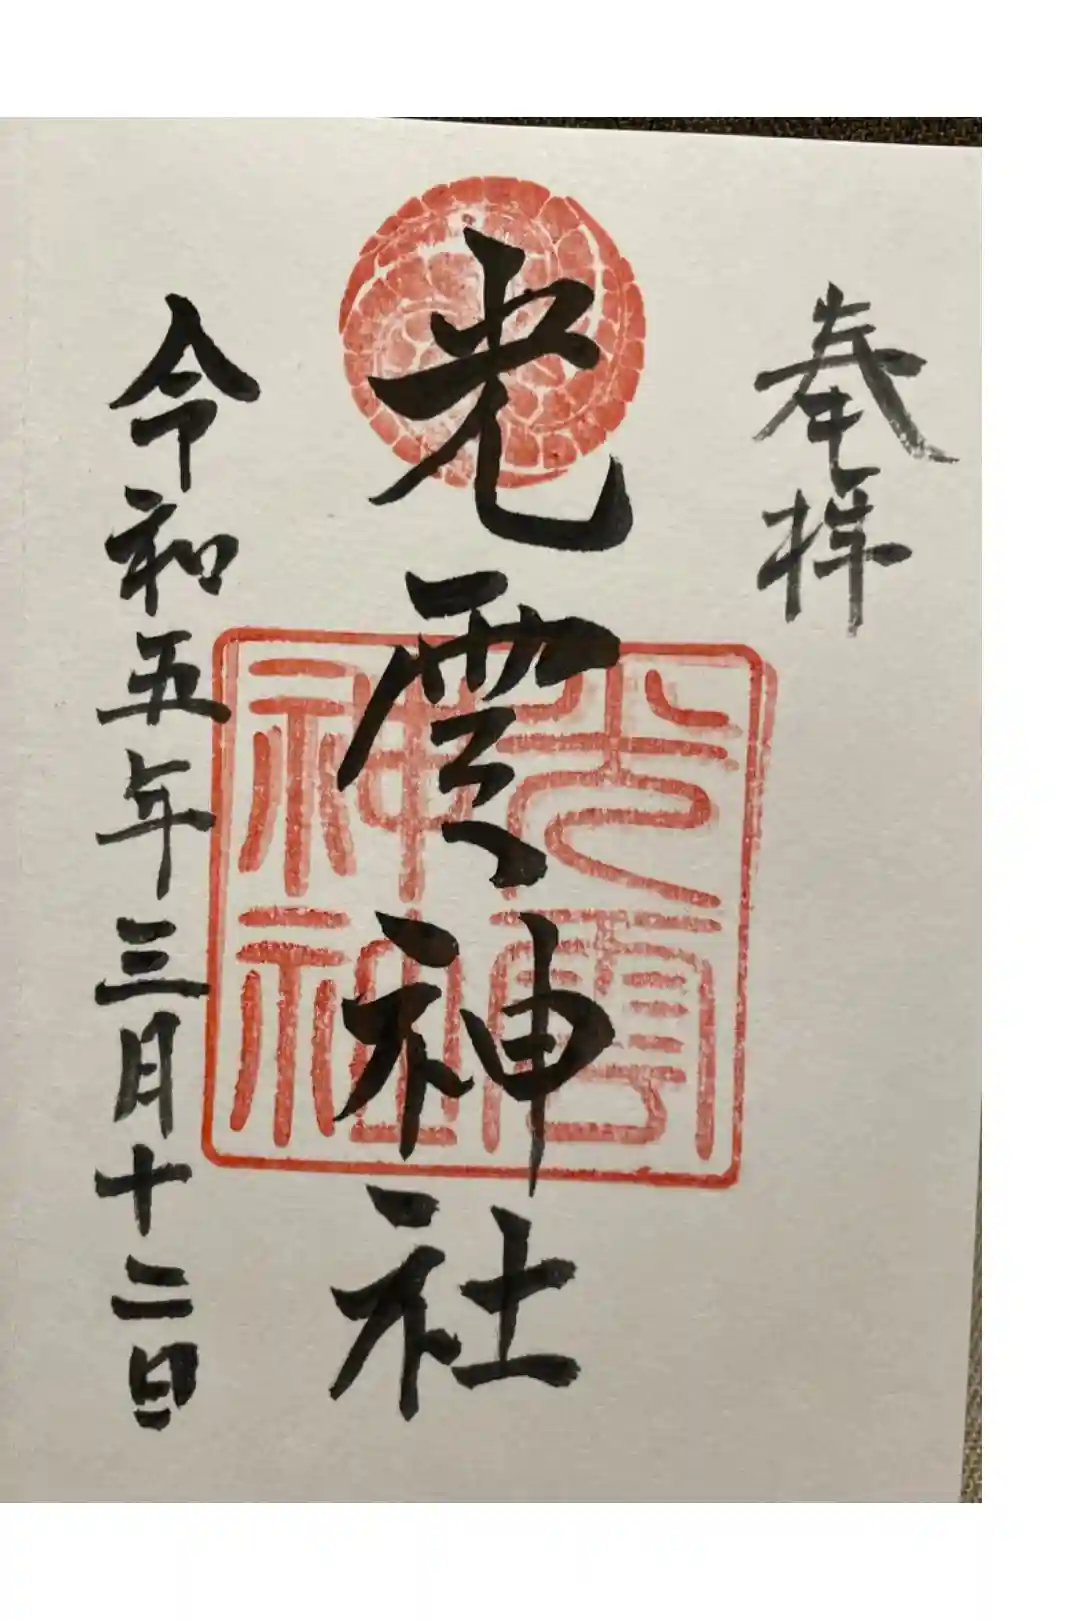 奉拝
光雲神社
光雲
神社
令和五年三月十二日